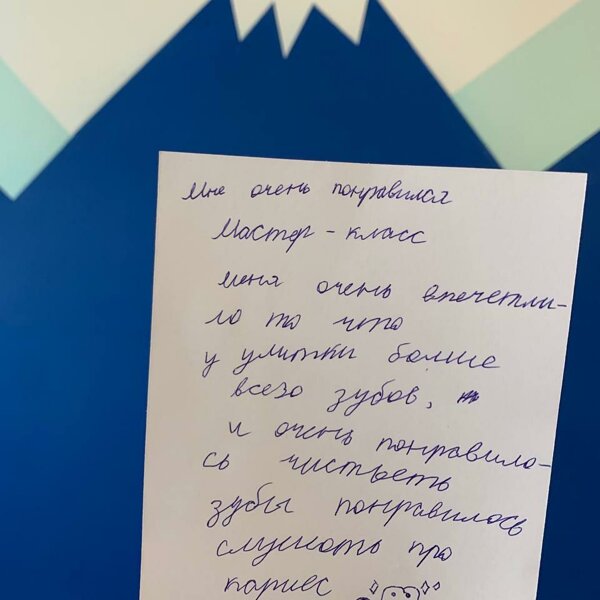 Мне очень понравился
Мастер - класс
меня очень впечетли-
ло то что
у улитки болше
всего зубов,
и очень понравило-
сь чистьеть
зубы понравилось
слушоть про
кариес